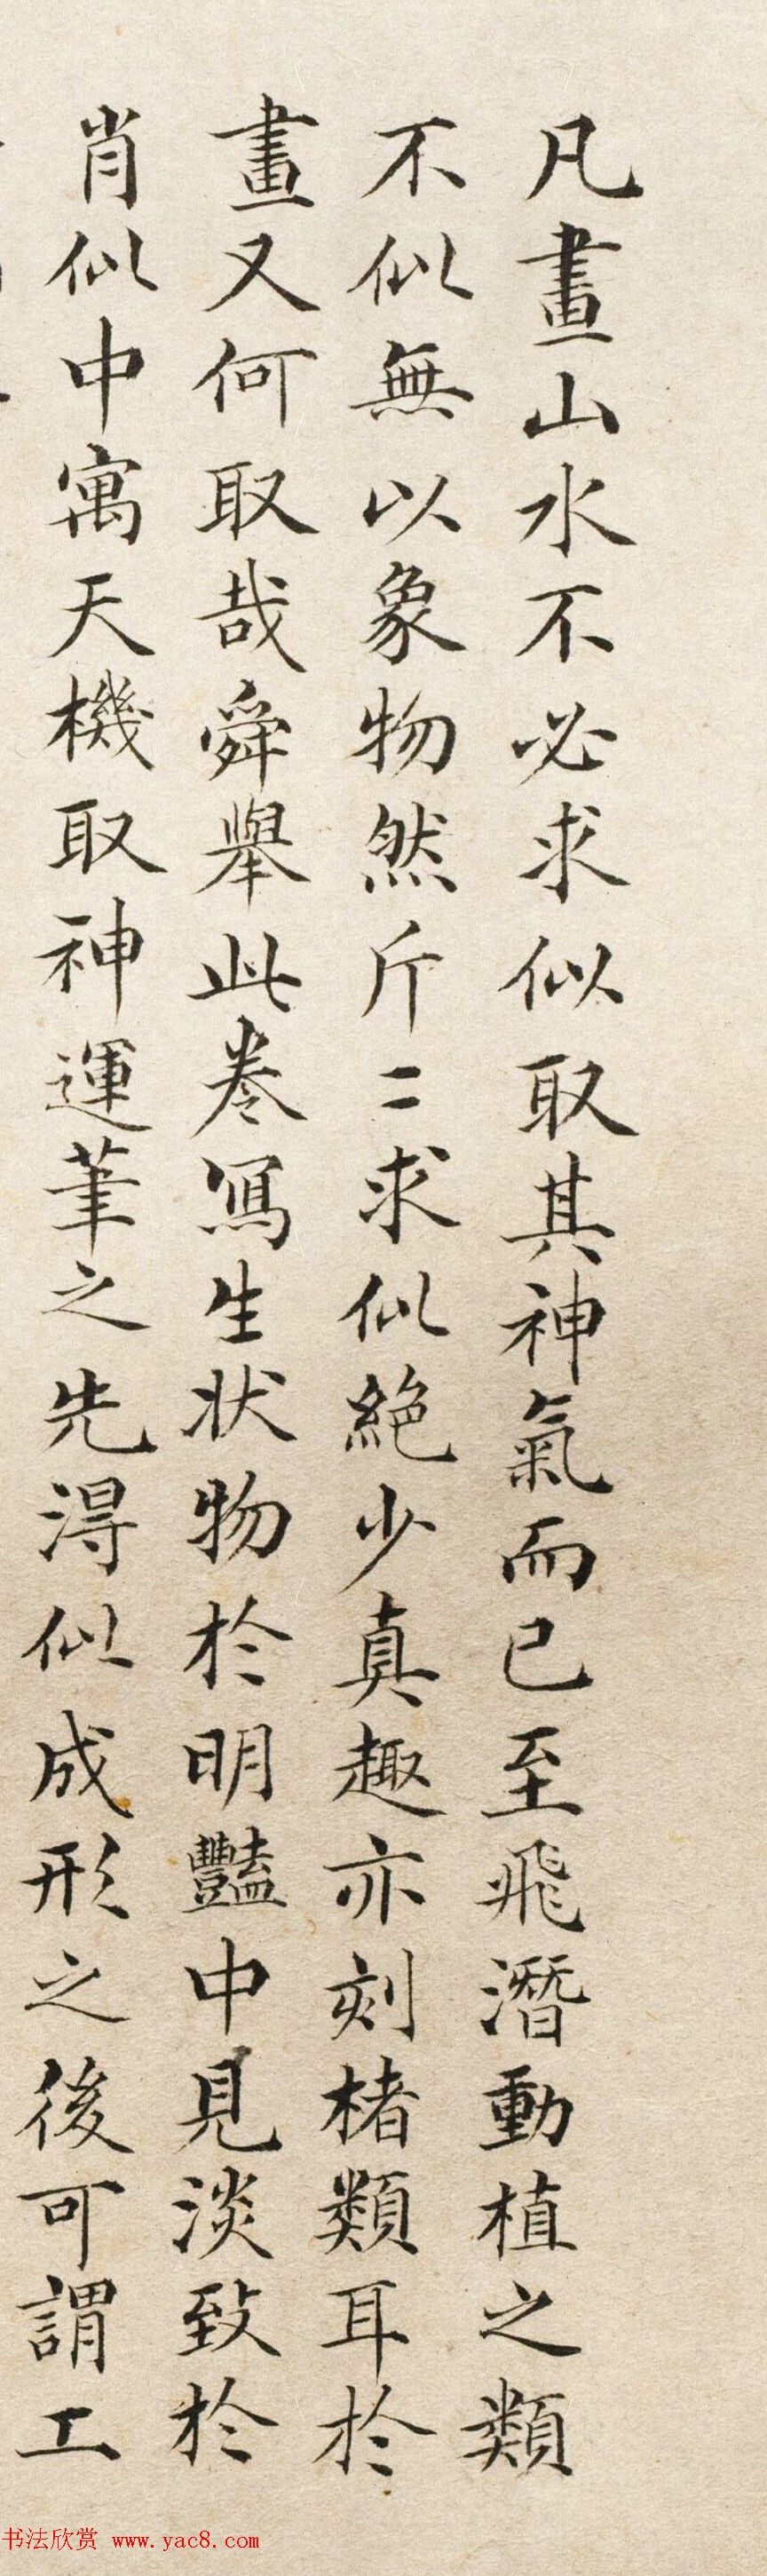 凡畫山水不必求似取其神氣而已至飛潛動植之類
不似無以象物然斤〻求似絕少真趣亦刻楮類耳於
畫又何取哉舜舉此卷寫生狀物於明豔中見淡致於
肖似中寓天機取神運筆之先得似成形之後可謂工
书法欣赏 www.yac8.com